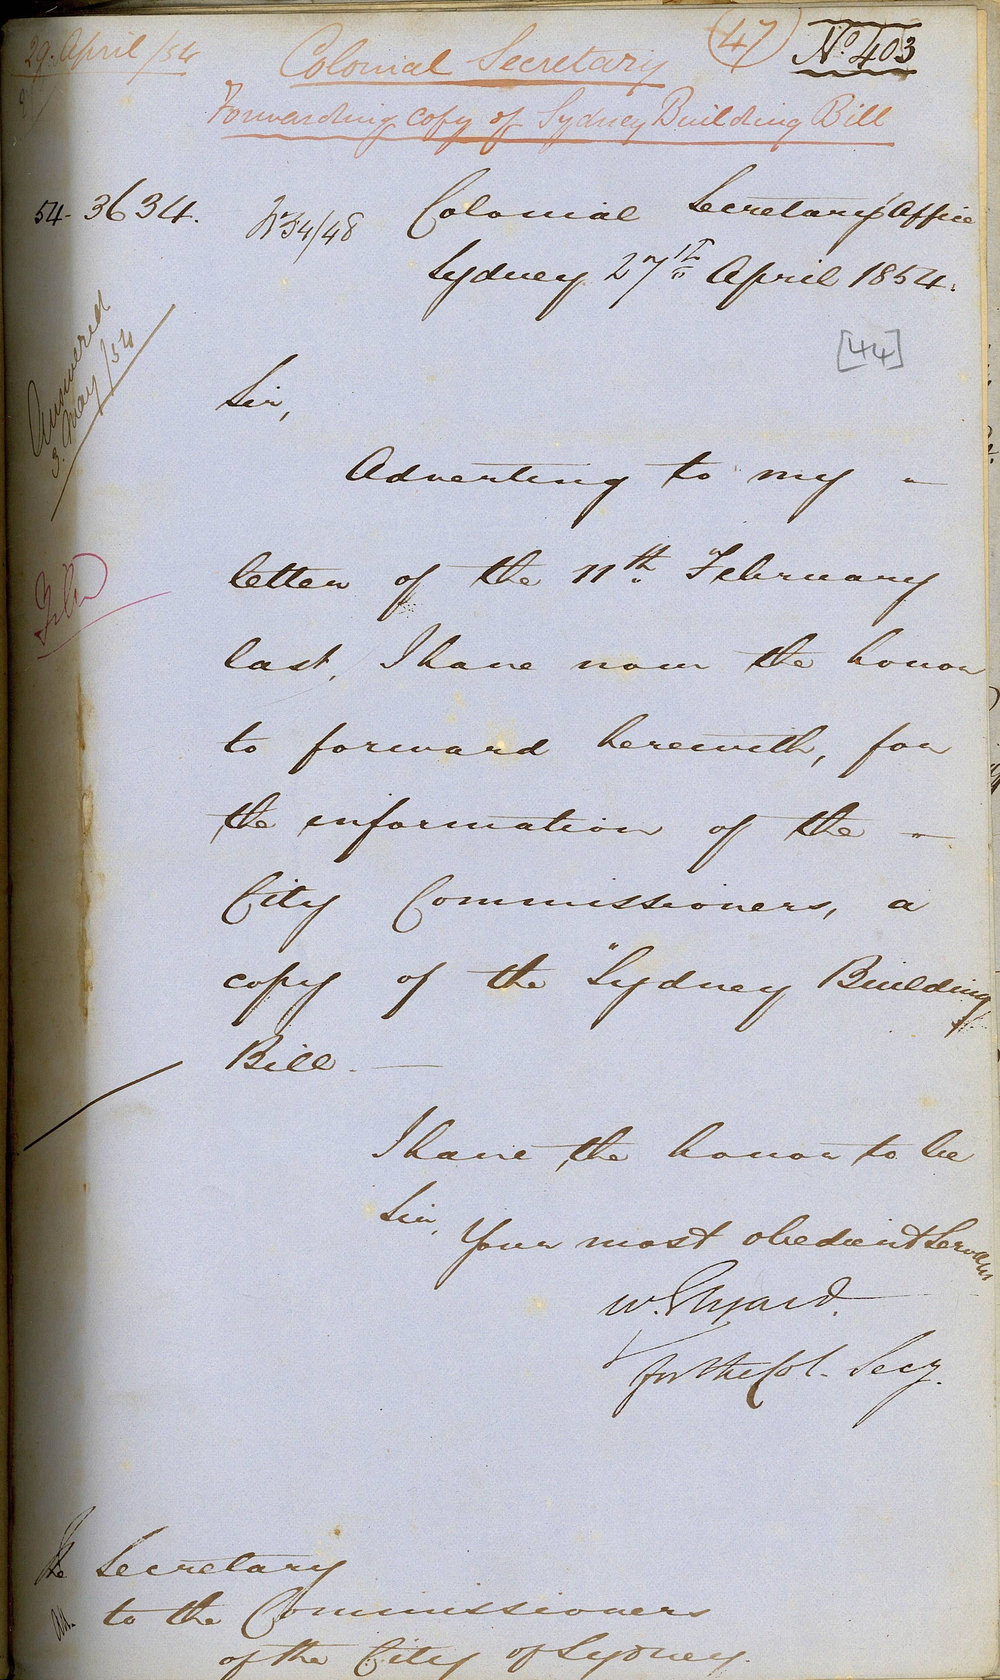 29. April /54
Colonial Secretary
(47)
No. 403
Forwarding copy of Sydney Building Bill
54-3634.
34/48
Colonial Secretary's Office
Sydney 27th April 1854.
[44]
Answered
3. May /54
Sir,
Adverting to my
letter of the 11th February
last, I have now the honor
to forward herewith, for
the information of the
City Commissioners, a
copy of the "Sydney Building"
Bill.
I have the honor to be
Sir,
Your most obedient Servant
W. Elyard.
for the Col. Secy.
The Secretary
to the Commissioners
of the City of Sydney.